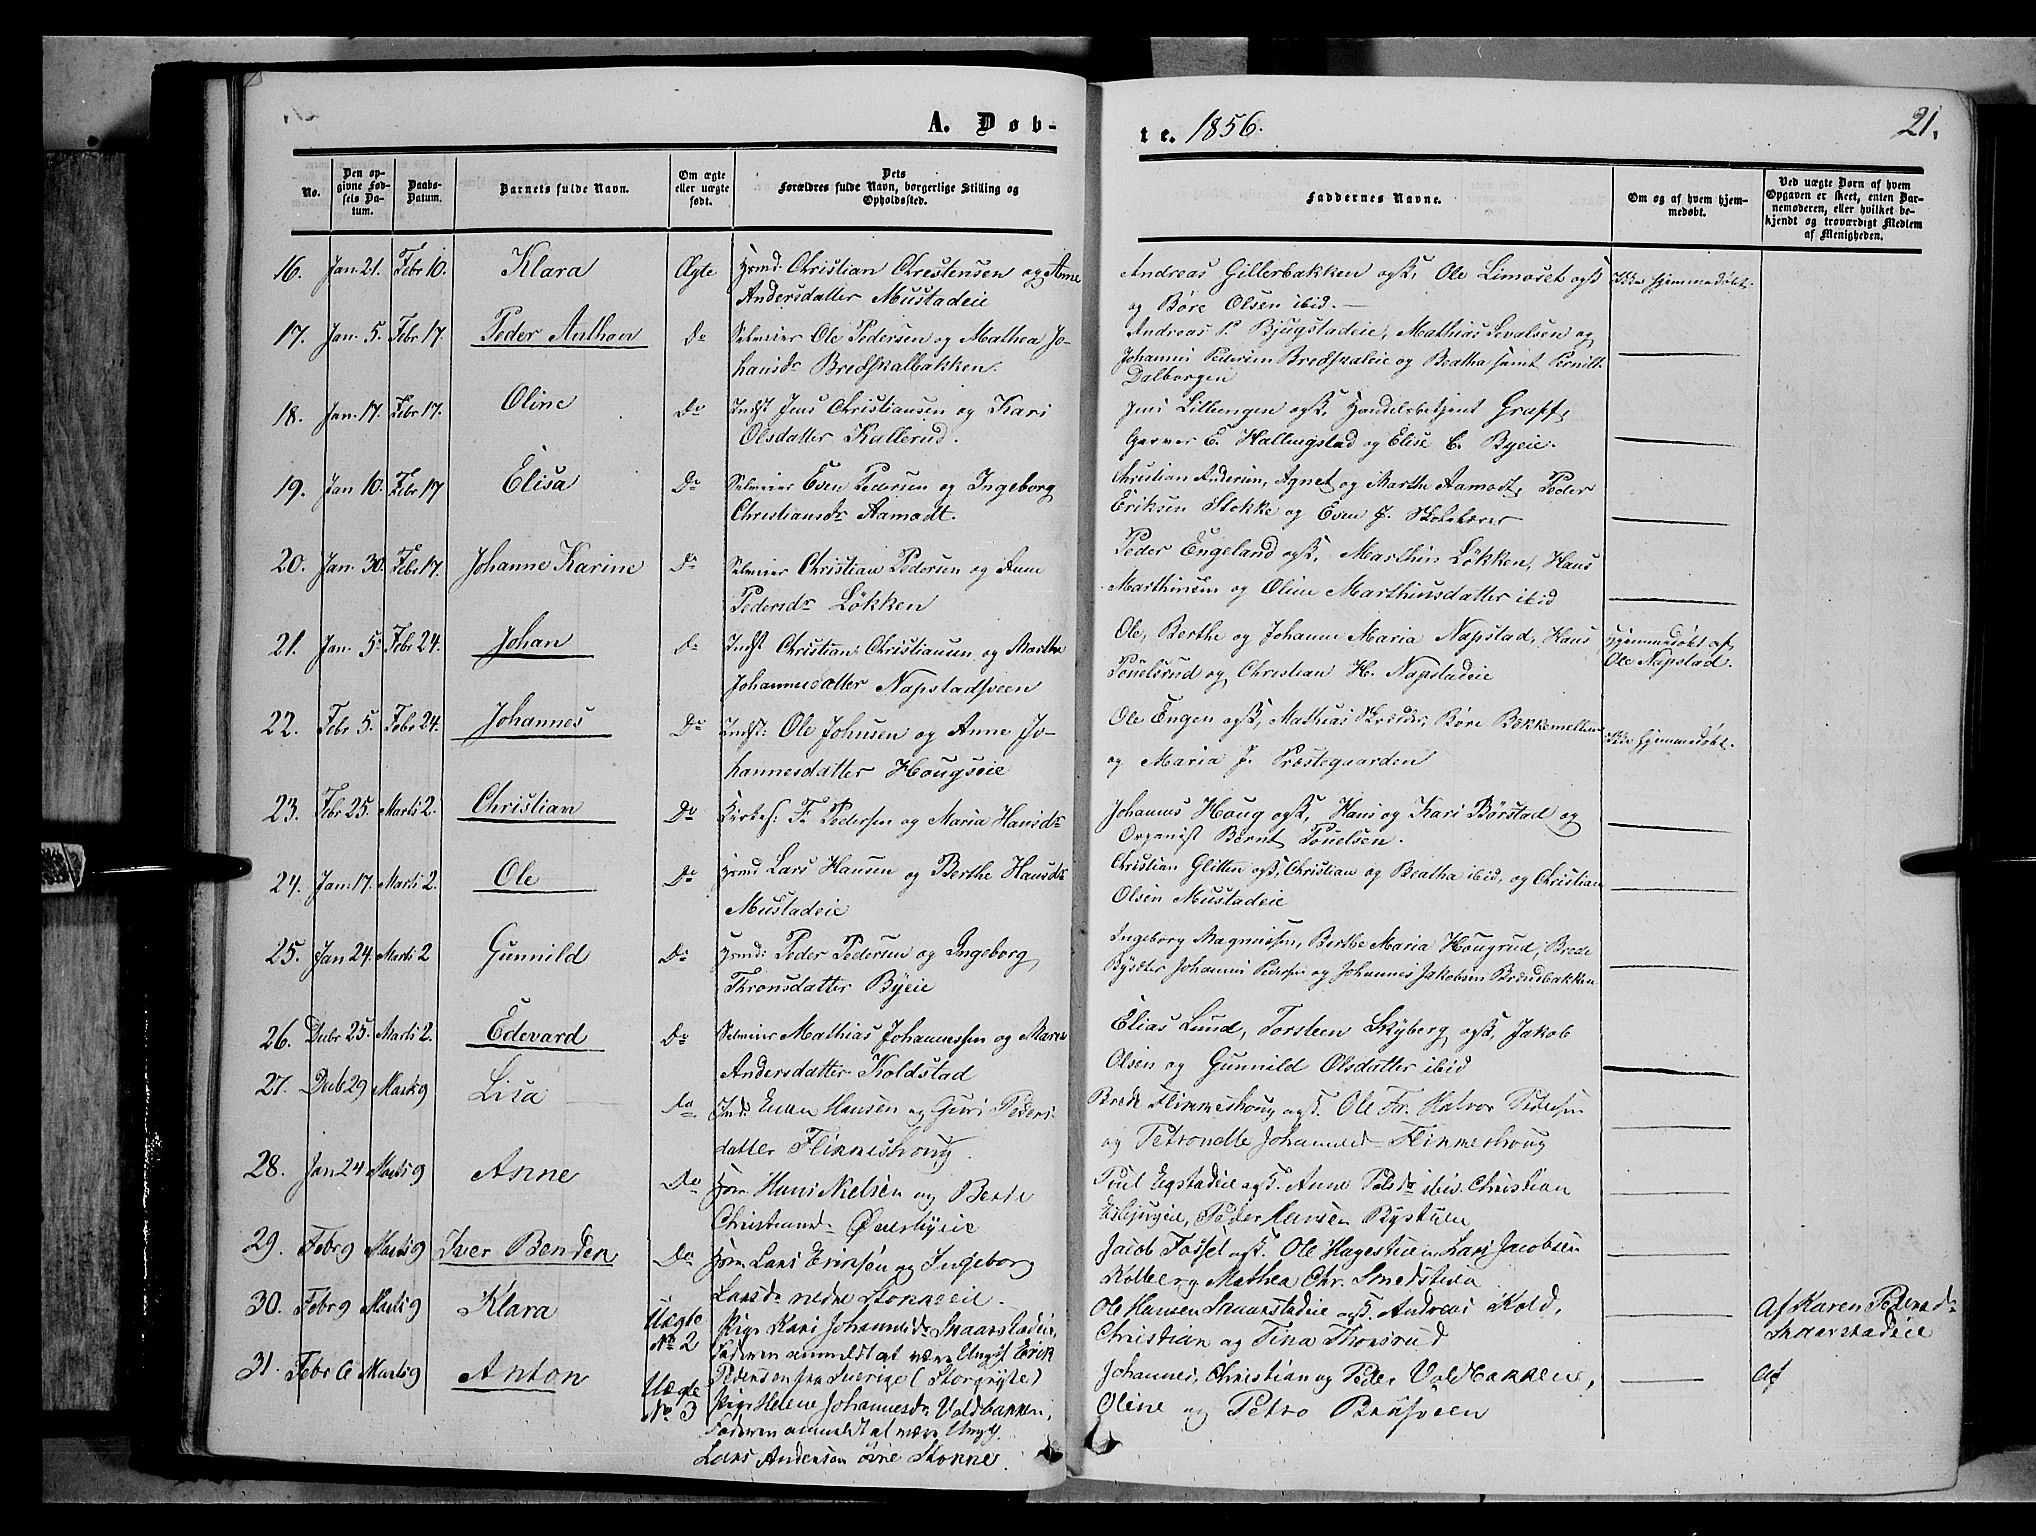 A. Døb-
te. 1856.
21.
No.
Den op-
givne Fød-
sels Da-
tum.
Daabs-
Datum.
Barnets fulde Navn.
Om ægte
eller uægte
født.
Dets
Forældres fulde Navn, borgerlige Stilling og
Opholdssted.
Faddernes Navne.
Om og af hvem hjem-
medøbt.
Ved uægte Børn af hvem
Opgaven er skeet, enten Bar-
nemoderen, eller hvilket be-
kjendt og troværdigt Medlem
af Menigheden.
16. Jan. 21. Febr 10. Klara Ægte Hsmd. Christian Christensen og Anne
Andersdatter Mustadeie
Andreas Gillerbakken ogs., Ole Limoset ogs
og Børe Olsen ibid. —
Ikke hjemmedøbt.
17. Jan. 5. Febr 17. Peder Anthon Do Selveier Ole Pedersen og Mathea Jo-
hansdr Bredskalbakken.
Andreas P. Bjugstadeie, Mathias Sevalsen og
Johannes Pedersen Bredskaleie og Beatha samt Pernill.
Dalborgen
18. Jan. 17. Febr 17. Oline Do Indst Jens Christiansen og Kari
Olsdatter Kallerud.
Jens Lillengen ogs., Handelsbetjent Graff,
Garver E. Hallingstad og Elise C. Byeie.
19. Jan 10. Febr 17 Elisa Do Selveier Even Pedersen og Ingeborg
Christiansdr Aamodt.
Christian Andersen, Agnet og Marthe Aamodt, Peder
Eriksen Stokke og Even J.
20. Jan. 30. Febr 17. Johanne Karine Do Selveier Christian Pedersen og Anne
Pedersdr Løkken
Peder Engeland ogs., Marthin Løkken, Hans
Marthinsen og Oline Marthinsdatter ibid
21. Jan. 5. Febr 24. Johan Do Indst Christian Christiansen og Marthe
Johannesdatter Napstadsveen
Ole, Berthe og Johanne Maria Napstad, Hans
Pouelsrud og Christian H. Napstadeie
Hjemmedøbt af
Ole Napstad.
22. Febr 5. Febr 24. Johannes Do Indst: Ole Johnsen og Anne Jo-
hannesdatter Hougseie
Ole Engen ogs., Mathias Børe Bækkemellem
og Maria J. Præstegaarden
Ikke hjemmedøbt.
23. Febr 25. Marts 2. Christian Do Kirkes. Fr. Pedersen og Maria Hansdr
Johannes Houg ogs., Hans og Kari Børstad og
Organist Bernt Pouelsen.
24. Jan. 17. Marts 2. Ole Do Hsmd Lars Hansen og Berthe Hansdr
Mustadeie
Christian Glitten ogs, Christian og Beatha ibid, og Christian
Olsen Mustadeie
25. Jan 24. Marts 2 Gunnild Do Hsmd: Peder Pedersen og Ingeborg
Thronsdatter Byeie
Ingeborg Magnussen, Berthe Maria Hougrud, Brede
Johannes Pedersen og Johannes Jakobsen
26. Decbr 25. Marts 2. Edevard Do Selveier Mathias Johannessen og Maren
Andersdatter Koldstad
Elias Lund, Torsteen Skyberg ogs, Jakob
Olsen og Gunnild Olsdatter ibid
27. Decb 29 Marts 9 Lisa Do Inds. Even Hansen og Guri Peders
datter Flinneshoug.
Brede Flinneshoug ogs. Ole Fr. Halvor Pedersen
og Petronelle Johannesd Flinneshoug
28. Jan 24 Marts 9 Anne Do Hsm Hans Nielsen og Berte
Christiansd Øverbyeie
Poul Egstadeie ogs. Anne ibid. Christian
Peder Hansen Bystuen
29. Febr 9 Marts 9 Iver Benden Do Hsm Lars Eriksen og Ingeborg
Larsd nedre Stokkeeie
Jacob Fossel ogs. Ole Lars Jacobsen
Kolberg Mathea Chr. Smedstuen
30. Febr 9 Marts 9 Klara Uægte
No 2 Pige Kari Johannesdr Snaarstadeie,
Faderen anmeldt at være Ungk Erik
Pedersen fra Sverige
Ole Hansen Snaarstadeie ogs. Andreas Kold,
Christian og Tina Thorsrud
Af Karen Pedersd
Snaarstadeie
31. Febr 6 Marts 9 Anton Uægte
No 3 Pige Helene Johannesdr Voldbakken,
Faderen anmeldt at være Ungk.
Lars Andersen øvre Stokke.
Johannes, Christian og Peder Voldbakkene,
Oline og Petro
Af